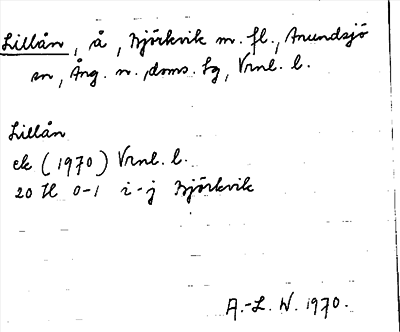 Lillån, å, Björkvik m. fl., Anundsjö
sn, Ång. n. doms. sg, Vrnl. l.
Lillån
ek (1970) Vrnl. l.
20 H 0-1 i-j Björkvik
A.-L. W. 1970.